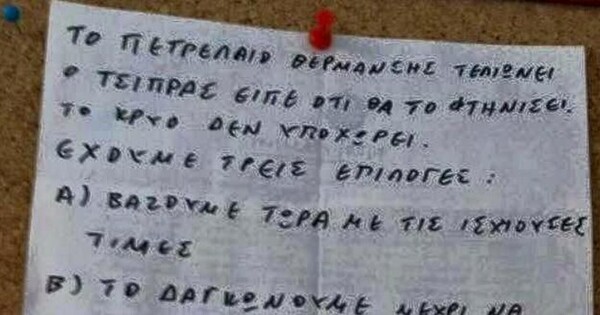 ΤΟ ΠΕΤΡΕΛΑΙΟ ΘΕΡΜΑΝΣΗΣ ΤΕΛΙΩΝΕΙ
Ο ΤΣΙΠΡΑΣ ΕΙΠΕ ΟΤΙ ΘΑ ΤΟ ΦΤΗΝΙΣΕΙ.
ΤΟ ΚΡΥΟ ΔΕΝ ΥΠΟΧΩΡΕΙ.
ΕΧΟΥΜΕ ΤΡΕΙΣ ΕΠΙΛΟΓΕΣ:
Α) ΒΑΖΟΥΜΕ ΤΩΡΑ ΜΕ ΤΙΣ ΙΣΧΙΟΥΣΕΣ
ΤΙΜΕΣ
Β) ΤΟ ΔΑΓΚΩΝΟΥΜΕ ΜΕΧΡΙ ΝΑ